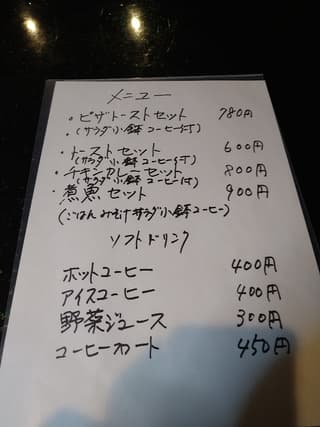 メニュー
・ピザトーストセット 780円
・(サラダ小鉢コーヒー付)
・トーストセット 600円
(サラダ小鉢コーヒー付)
・チキンカレーセット 800円
(サラダ小鉢コーヒー付)
・煮魚セット 900円
(ごはんみそ汁サラダ小鉢コーヒー)
ソフトドリンク
ホットコーヒー 400円
アイスコーヒー 400円
野菜ジュース 300円
コーヒーフロート 450円